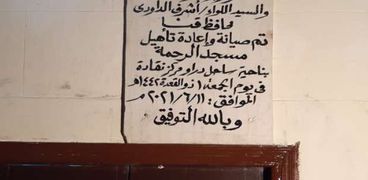 والسيد اللواء/ أشرف الداودى
محافظ قنا
تم صيانة وإعادة تأهيل
مسجد الرحمة
بناحية ساحل دراو مركز نقادة
فى يوم الجمعة ١ ذو القعدة ١٤٤٢هـ
الموافق: ٢٠٢١/٦/١١م
وبالله التوفيق